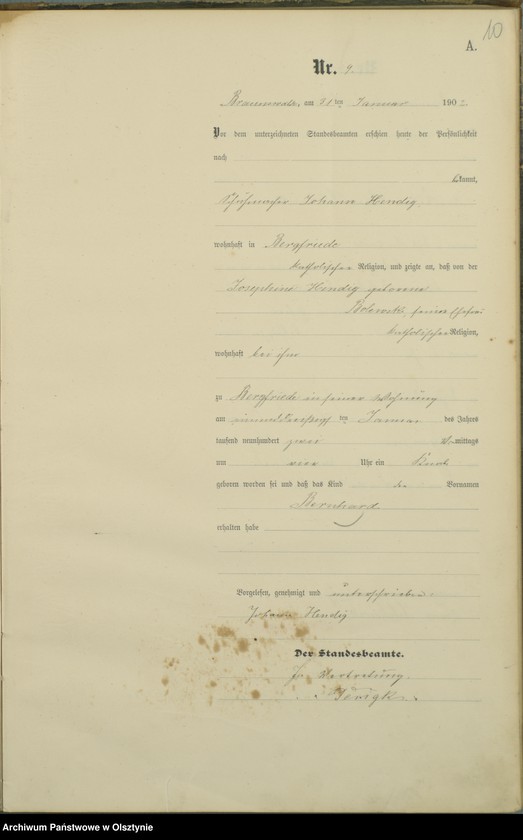 10
A.
Nr. 9.
Braunswalde, am 31 ten Januar 1902
Vor dem unterzeichneten Standesbeamten erschien heute der Persönlichkeit
nach
bekannt,
Schuhmacher Johann Hendig
wohnhaft in Bergfriede
katholischer Religion, und zeigte an, daß von der
Josephine Hendig geborene
seiner Ehefrau
katholischer Religion,
wohnhaft bei ihm
zu Bergfriede in seiner Wohnung
am neunundzwanzigsten ten Januar des Jahres
tausend neunhundert zwei mittags
um vier Uhr ein Knabe
geboren worden sei und daß das Kind den Vornamen
Bernhard
erhalten habe
Vorgelesen, genehmigt und unterschrieben.
Johann Hendig
Der Standesbeamte.
In Vertretung.
Archiwum Państwowe w Olsztynie